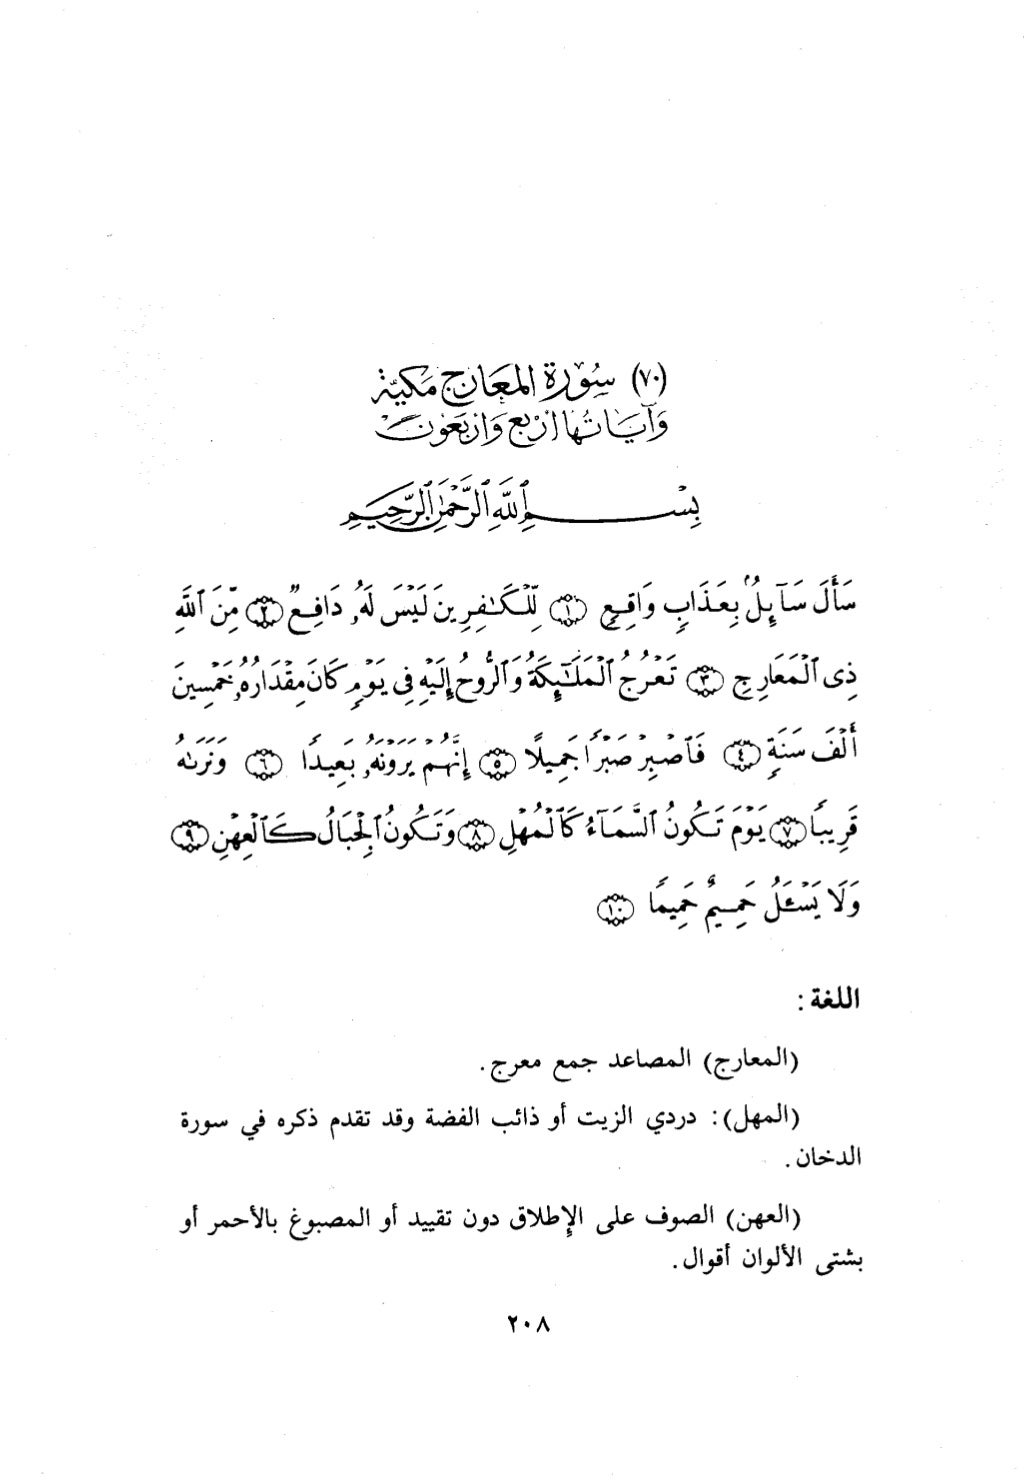 (٧٠) سُورَة المَعَارِج مَكيَّة
وَآيَاتُهَا أرْبَع وَأرْبَعُون
بِسْمِ ٱللَّهِ ٱلرَّحْمَٰنِ ٱلرَّحِيمِ
سَأَلَ سَآئِلٌۢ بِعَذَابٍ وَاقِعٍ ۝١ لِّلْكَٰفِرِينَ لَيْسَ لَهُۥ دَافِعٌ ۝٢ مِّنَ ٱللَّهِ
ذِى ٱلْمَعَارِجِ ۝٣ تَعْرُجُ ٱلْمَلَٰٓئِكَةُ وَٱلرُّوحُ إِلَيْهِ فِى يَوْمٍ كَانَ مِقْدَارُهُۥ خَمْسِينَ
أَلْفَ سَنَةٍ ۝٤ فَٱصْبِرْ صَبْرًا جَمِيلًا ۝٥ إِنَّهُمْ يَرَوْنَهُۥ بَعِيدًا ۝٦ وَنَرَىٰهُ
قَرِيبًا ۝٧ يَوْمَ تَكُونُ ٱلسَّمَآءُ كَٱلْمُهْلِ ۝٨ وَتَكُونُ ٱلْجِبَالُ كَٱلْعِهْنِ ۝٩
وَلَا يَسْـَٔلُ حَمِيمٌ حَمِيمًا ۝١٠
اللغة :
(المعارج) المصاعد جمع معرج.
(المهل): دردي الزيت أو ذائب الفضة وقد تقدم ذكره في سورة
الدخان.
(العهن) الصوف على الإطلاق دون تقييد أو المصبوغ بالأحمر أو
بشتى الألوان أقوال.
٢٠٨